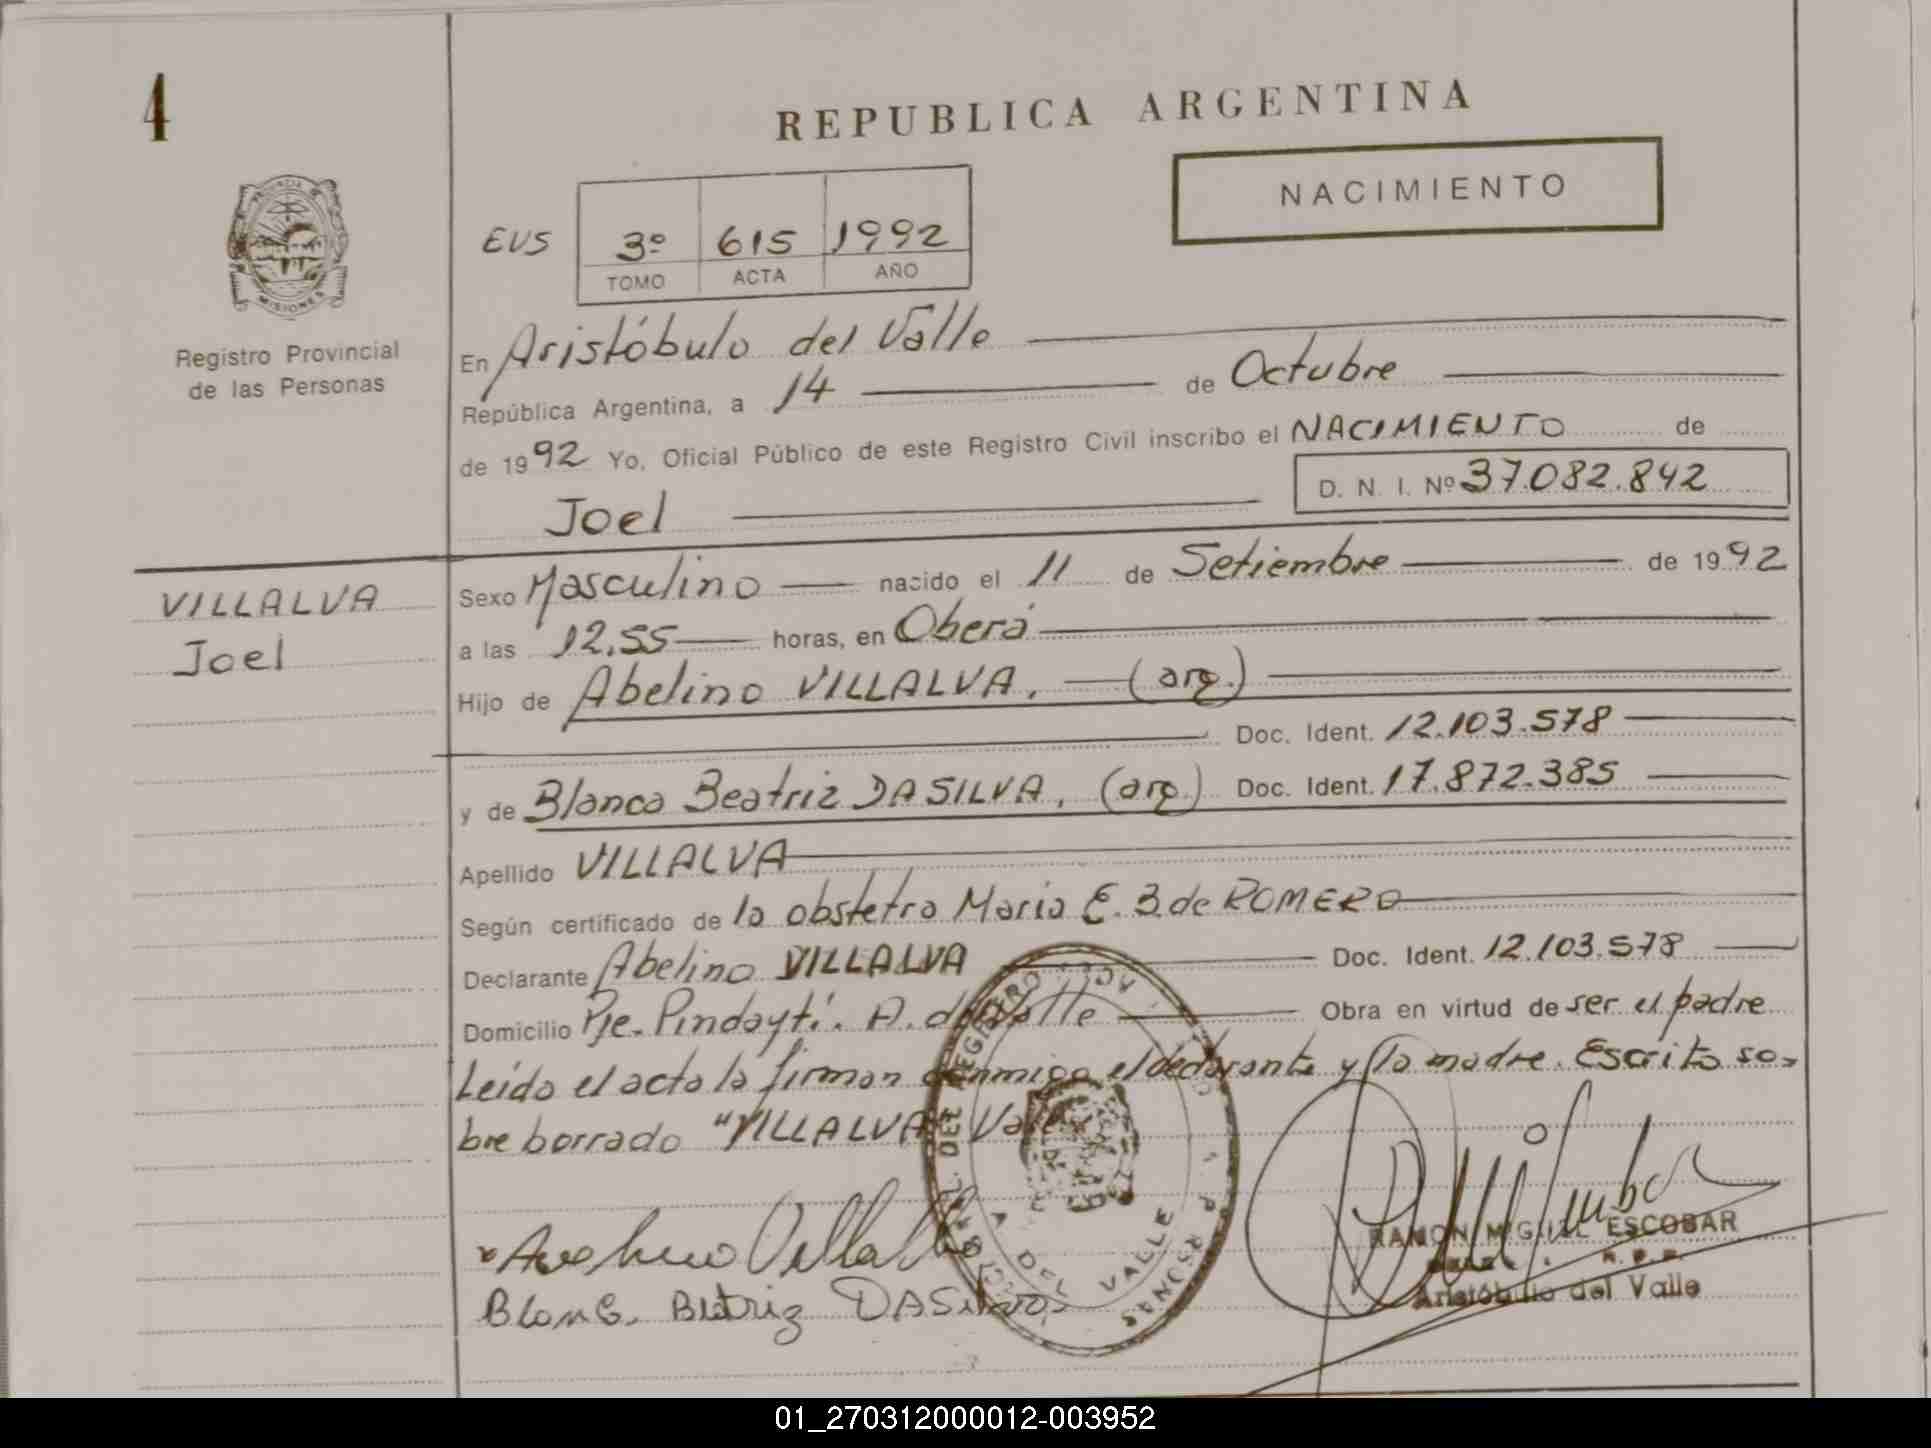 4
REPUBLICA ARGENTINA
NACIMIENTO
PROVINCIA DE
MISIONES
Registro Provincial
de las Personas
EUS
3º 615 1992
TOMO ACTA AÑO
En Aristóbulo del Valle
República Argentina, a 14 de Octubre
de 1992 Yo, Oficial Público de este Registro Civil inscribo el NACIMIENTO de
Joel D. N. I. Nº 37.082.842
VILLALVA
Joel
Sexo Masculino nacido el 11 de Setiembre de 1992
a las 12.55 horas, en Oberá
Hijo de Abelino VILLALVA, (arg.)
Doc. Ident. 12.103.578
y de Blanca Beatriz DA SILVA, (arg.) Doc. Ident. 17.872.385
Apellido VILLALVA
Según certificado de la obstetra Maria E. B. de ROMERO
Declarante Abelino VILLALVA Doc. Ident. 12.103.578
Domicilio Pje. Pindaytí. A. del Valle Obra en virtud de ser el padre
Leído el acta la firman conmigo el declarante y la madre. Escrito so-
bre borrado "VILLALVA" Vale
Villalva
Beatriz DASilva
DEL VALLE
RAMON MIGUEL ESCOBAR
Aristóbulo del Valle
01_270312000012-003952